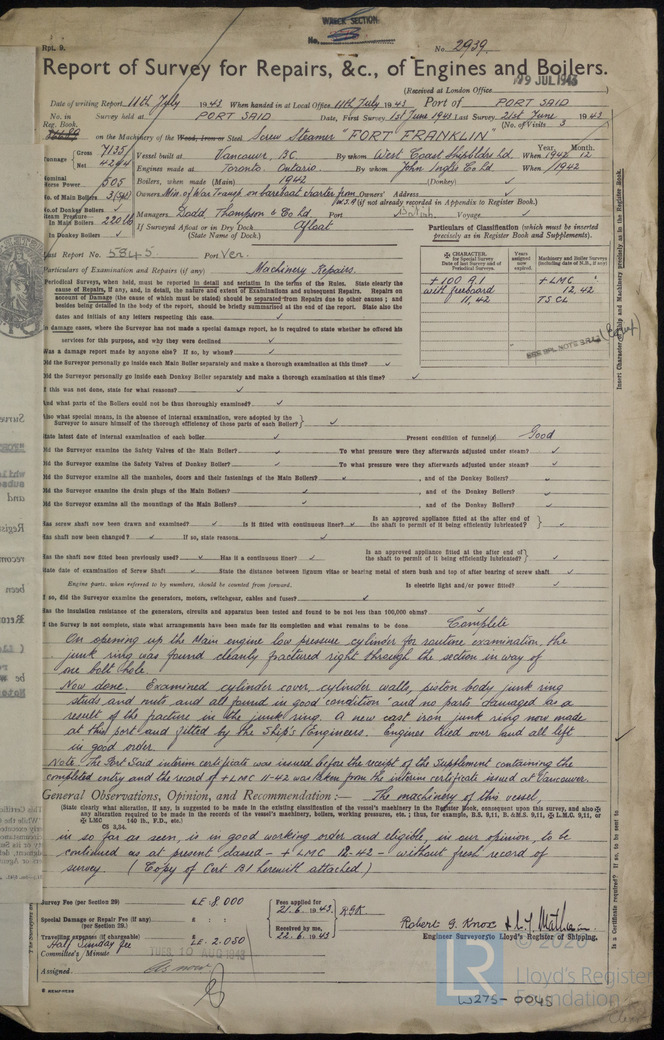 WRECK SECTION
No.
Rpt. 9.
No. 2939
Report of Survey for Repairs, &c., of Engines and Boilers.
(Received at London Office 19 JUL 1943 )
Date of writing Report 11th July 1943 When handed in at Local Office 11th July 1943 Port of PORT SAID
No. in Reg. Book.
Survey held at PORT SAID Date, First Survey 1st June 1943 Last Survey 21st June 1943
(No. of Visits 3 )
on the Machinery of the Wood, Iron or Steel Screw Steamer "FORT FRANKLIN"
Tonnage Gross 7135
Net
Vessel built at Vancouver, B.C. By whom West Coast Shipbldrs Ld. When 1942 12
Year. Month.
Engines made at Toronto, Ontario. By whom John Inglis Co Ld. When 1942
Nominal Horse Power 505
Boilers, when made (Main) 1942 (Donkey)
No. of Main Boilers 3
Owners Min. of War Transp. on bareboat charter from W.S.A. Owners' Address
(if not already recorded in Appendix to Register Book.)
No. of Donkey Boilers
Steam Pressure in Main Boilers 220 lb
Managers Dodd Thompson & Co Ld Port British Voyage
in Donkey Boilers
If Surveyed Afloat or in Dry Dock Afloat
(State Name of Dock.)
Particulars of Classification (which must be inserted precisely as in Register Book and Supplements).
Last Report No. 5845 Port Van.
CHARACTER. for Special Survey Date of last Survey and of Periodical Surveys.
Years assigned now expired.
Machinery and Boiler Surveys (including date of N.B., if any)
+ 100 A.1 + LMC
with freeboard 12, 42
11, 42 TS CL
Insert Character of Ship and Machinery precisely as in the Register Book.
Particulars of Examination and Repairs (if any) Machinery Repairs.
Periodical Surveys, when held, must be reported in detail and seriatim in the terms of the Rules. State clearly the
cause of Repairs, if any, and, in detail, the nature and extent of Examinations and subsequent Repairs. Repairs on
account of Damage (the cause of which must be stated) should be separated from Repairs due to other causes; and
besides being detailed in the body of the report, should be briefly summarised at the end of the report. State also the
dates and initials of any letters respecting this case.
In damage cases, where the Surveyor has not made a special damage report, he is required to state whether he offered his
services for this purpose, and why they were declined
Was a damage report made by anyone else? If so, by whom?
Did the Surveyor personally go inside each Main Boiler separately and make a thorough examination at this time?
Did the Surveyor personally go inside each Donkey Boiler separately and make a thorough examination at this time?
If this was not done, state for what reasons?
And what parts of the Boilers could not be thus thoroughly examined?
Also what special means, in the absence of internal examination, were adopted by the
Surveyor to assure himself of the thorough efficiency of those parts of each Boiler?
State latest date of internal examination of each boiler Present condition of funnel(s) Good
Did the Surveyor examine the Safety Valves of the Main Boiler? To what pressure were they afterwards adjusted under steam?
Did the Surveyor examine the Safety Valves of Donkey Boiler? To what pressure were they afterwards adjusted under steam?
Did the Surveyor examine all the manholes, doors and their fastenings of the Main Boilers? , and of the Donkey Boilers?
Did the Surveyor examine the drain plugs of the Main Boilers? , and of the Donkey Boilers?
Did the Surveyor examine all the mountings of the Main Boilers? , and of the Donkey Boilers?
Has screw shaft now been drawn and examined? Is it fitted with continuous liner? Is an approved appliance fitted at the after end of the shaft to permit of it being efficiently lubricated?
Has shaft now been changed? If so, state reasons
Has the shaft now fitted been previously used? Has it a continuous liner? Is an approved appliance fitted at the after end of the shaft to permit of it being efficiently lubricated?
State date of examination of Screw Shaft State the distance between lignum vitae or bearing metal of stern bush and top of after bearing of screw shaft
Engine parts, when referred to by numbers, should be counted from forward. Is electric light and/or power fitted?
If so, did the Surveyor examine the generators, motors, switchgear, cables and fuses?
Has the insulation resistance of the generators, circuits and apparatus been tested and found to be not less than 100,000 ohms?
If the Survey is not complete, state what arrangements have been made for its completion and what remains to be done Complete
On opening up the Main engine low pressure cylinder for routine examination, the
junk ring was found cleanly fractured right through the section in way of
one bolt hole.
Now done. Examined cylinder cover, cylinder walls, piston body junk ring
studs and nuts and all found in good condition and no parts damaged as a
result of the fracture in the junk ring. A new cast iron junk ring now made
at this port and fitted by the Ship's Engineers. Engines tried over and all left
in good order.
Note The Port Said interim certificate was issued before the receipt of the Supplement containing the
completed entry and the record of + LMC 11-42 was taken from the interim certificate issued at Vancouver.
General Observations, Opinion, and Recommendation:— The machinery of this vessel,
(State clearly what alteration, if any, is suggested to be made in the existing classification of the vessel's machinery in the Register Book, consequent upon this survey, and also
any alteration required to be made in the records of the vessel's machinery, boilers, working pressures, etc.; thus, for example, B.S. 9,11, B.&M.S. 9,11, LMC 9,11, or
LMC 140 lb., F.D., etc.)
CS 3,34.
in so far as seen, is in good working order and eligible, in our opinion, to be
continued as at present classed - + LMC 12-42 - without fresh record of
survey. (Copy of Cert B1 herewith attached)
Survey Fee (per Section 29) £E: 8.000
Special Damage or Repair Fee (if any) (per Section 29.) £ : :
Travelling Expenses (if chargeable) £E: 2.050
Half Sunday fee
Fees applied for 21.6.1943
Received by me, 22.6.1943
Robert G. Knox
Engineer Surveyor to Lloyd's Register of Shipping.
Committee's Minute TUES 10 AUG 1943
Assigned As now
Is a Certificate required? If so, to be sent to
© 2020
LR
Lloyd's Register
Foundation
W275-0045